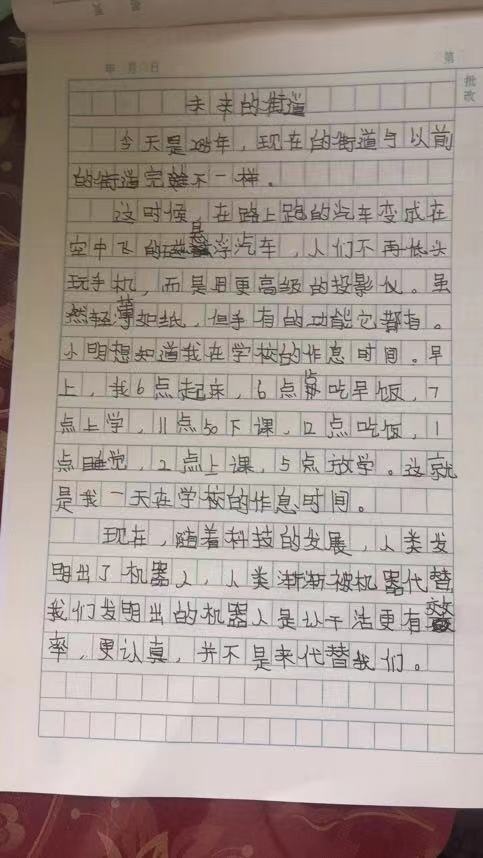 年 月 日
第
批
改
未来的街道
今天是285年，现在的街道与以前
的街道完鏾不一样。
这时候，在路上跑的汽车变成在
空中飞的悬浮汽车，人们不再低头
玩手机，而是用更高级的投影仪。虽
然轻薄如纸，但手有的功能它都有。
小明想知道我在学校的作息时间。早
上，我6点起床，6点半吃早饭，7
点上学，11点50下课，12点吃饭，1
点睡觉，2点上课，5点放学。这就
是我一天在学校的作息时间。
现在，随着科技的发展，人类发
明出了机器人，人类渐渐被机器代替
我们发明出的机器人是让干活更有效
率，更认真，并不是来代替我们。